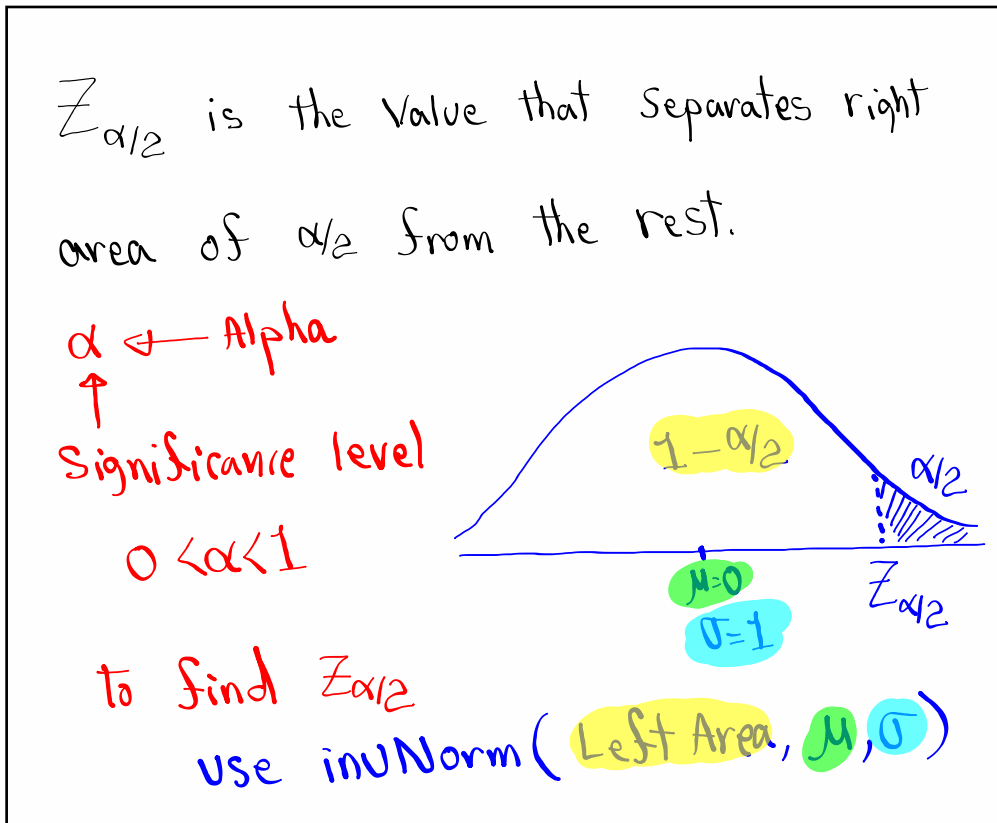 Z α/2 is the Value that Separates right
area of α/2 from the rest.
α ← Alpha
↑
Significance level
0 < α < 1
1 - α/2
α/2
μ=0
Z α/2
σ=1
to find Z α/2
use invNorm( Left Area, μ, σ )